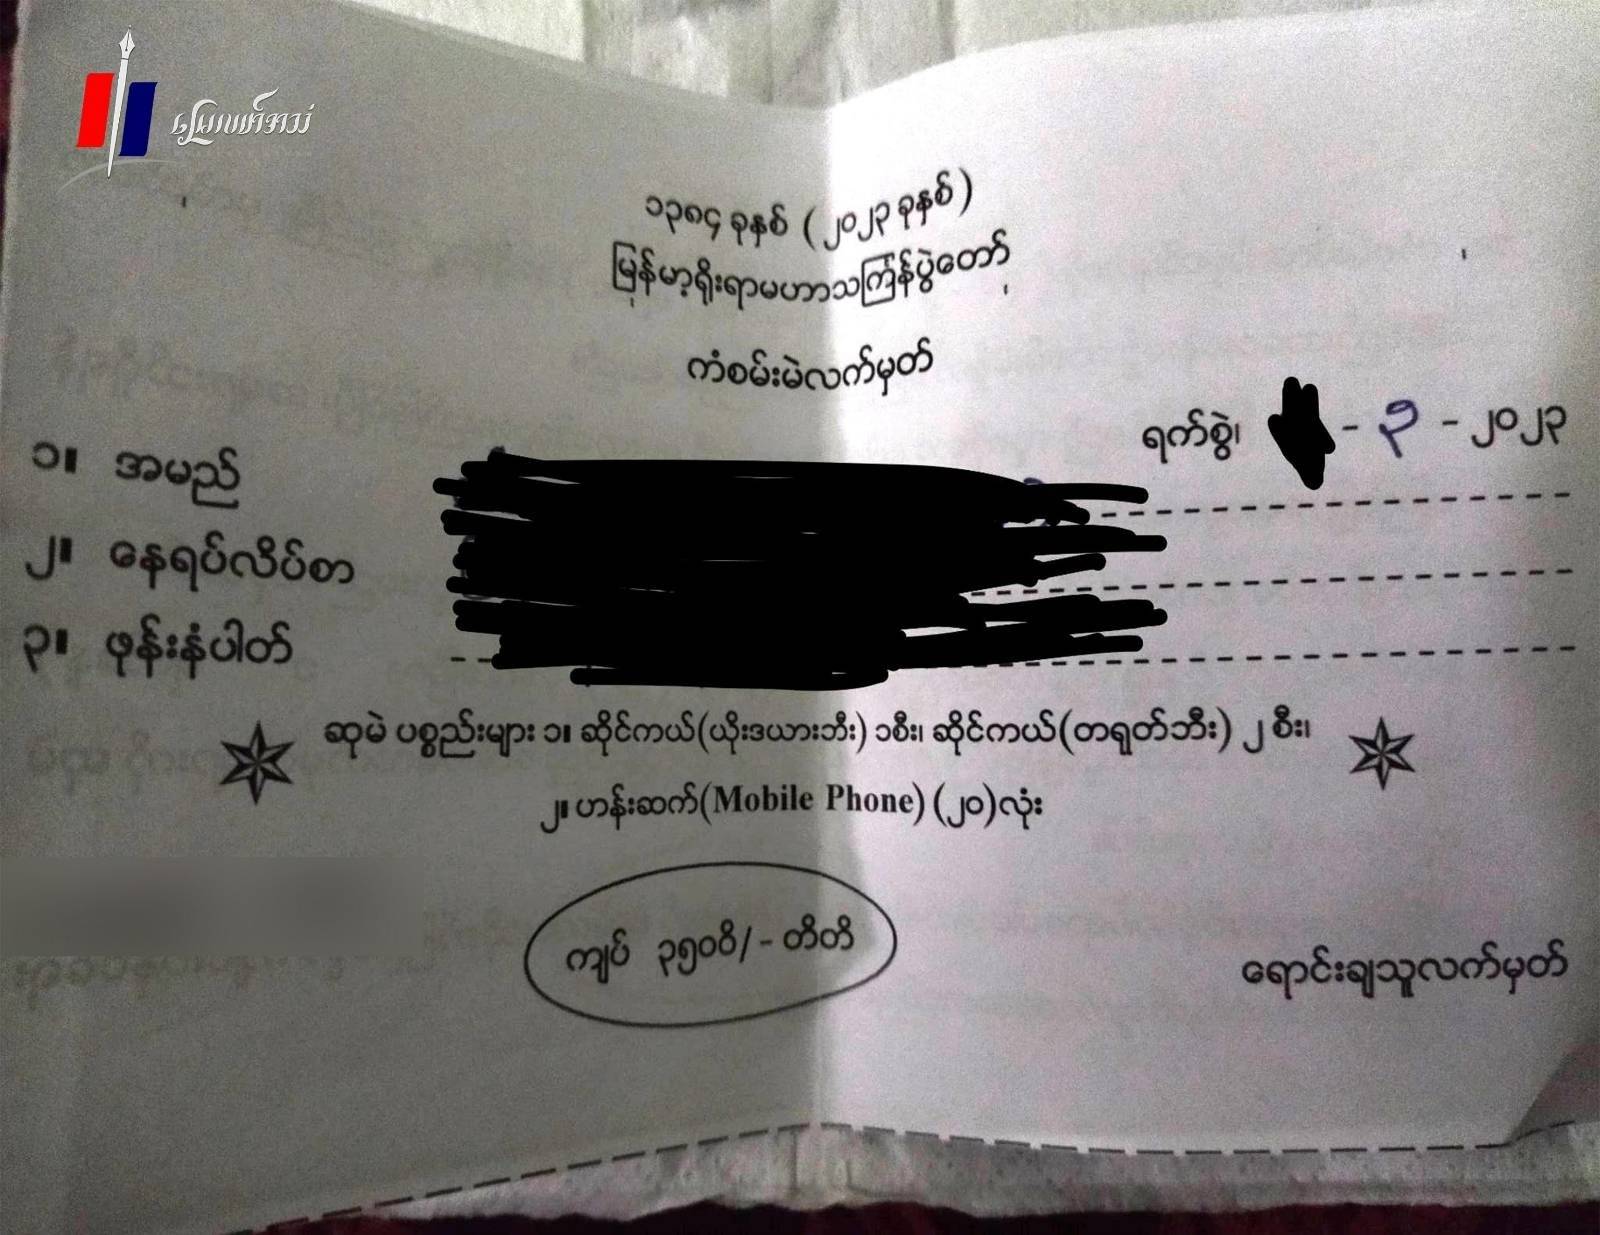 မြေလတ်အသံ
၁၃၈၄ ခုနှစ် ( ၂၀၂၃ ခုနှစ် )
မြန်မာ့ရိုးရာမဟာသင်္ကြန်ပွဲတော်
ကံစမ်းမဲလက်မှတ်
ရက်စွဲ၊ - ၃ - ၂၀၂၃
၁။ အမည်
၂။ နေရပ်လိပ်စာ
၃။ ဖုန်းနံပါတ်
ဆုမဲ ပစ္စည်းများ ၁။ ဆိုင်ကယ်(ယိုးဒယားဘီး) ၁စီး၊ ဆိုင်ကယ်(တရုတ်ဘီး) ၂ စီး၊
၂။ ဟန်းဆက်(Mobile Phone) (၂၀)လုံး
ကျပ် ၃၅၀၀ိ/- တိတိ
ရောင်းချသူလက်မှတ်